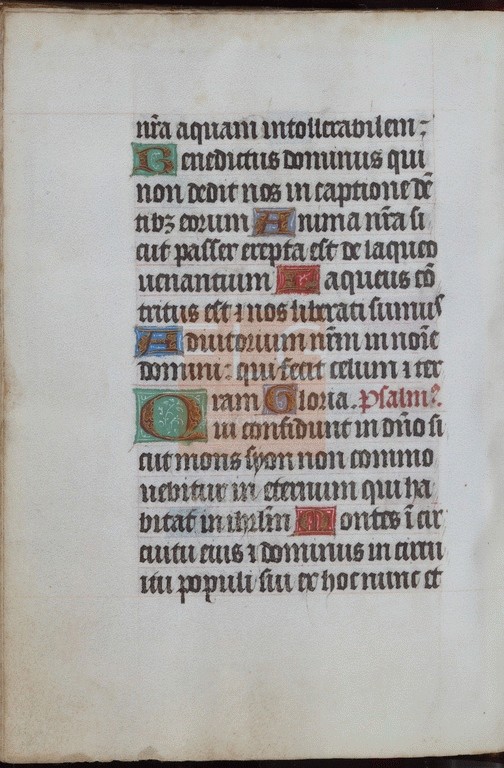 nr̃a aquam intollerabilem ;
Benedictus dominus qui
non dedit nos in captione dẽ
tibꝫ eorum Anima nr̃a si
cut passer erepta est de laqueo
uenantium Laqueus cõ
tritus est ⁊ nos liberati sumus
Adiutorium nr̃m in noĩe
domini : qui fecit celum ⁊ ter
ram Gloria. Psalm9.
Qui confidunt in dño si
cut mons syon non commo
uebitur in eternum qui ha
bitat in ihrl̃m Montes ĩ cir
cuitu eius ⁊ dominus in circu
itu populi sui ex hoc nunc et